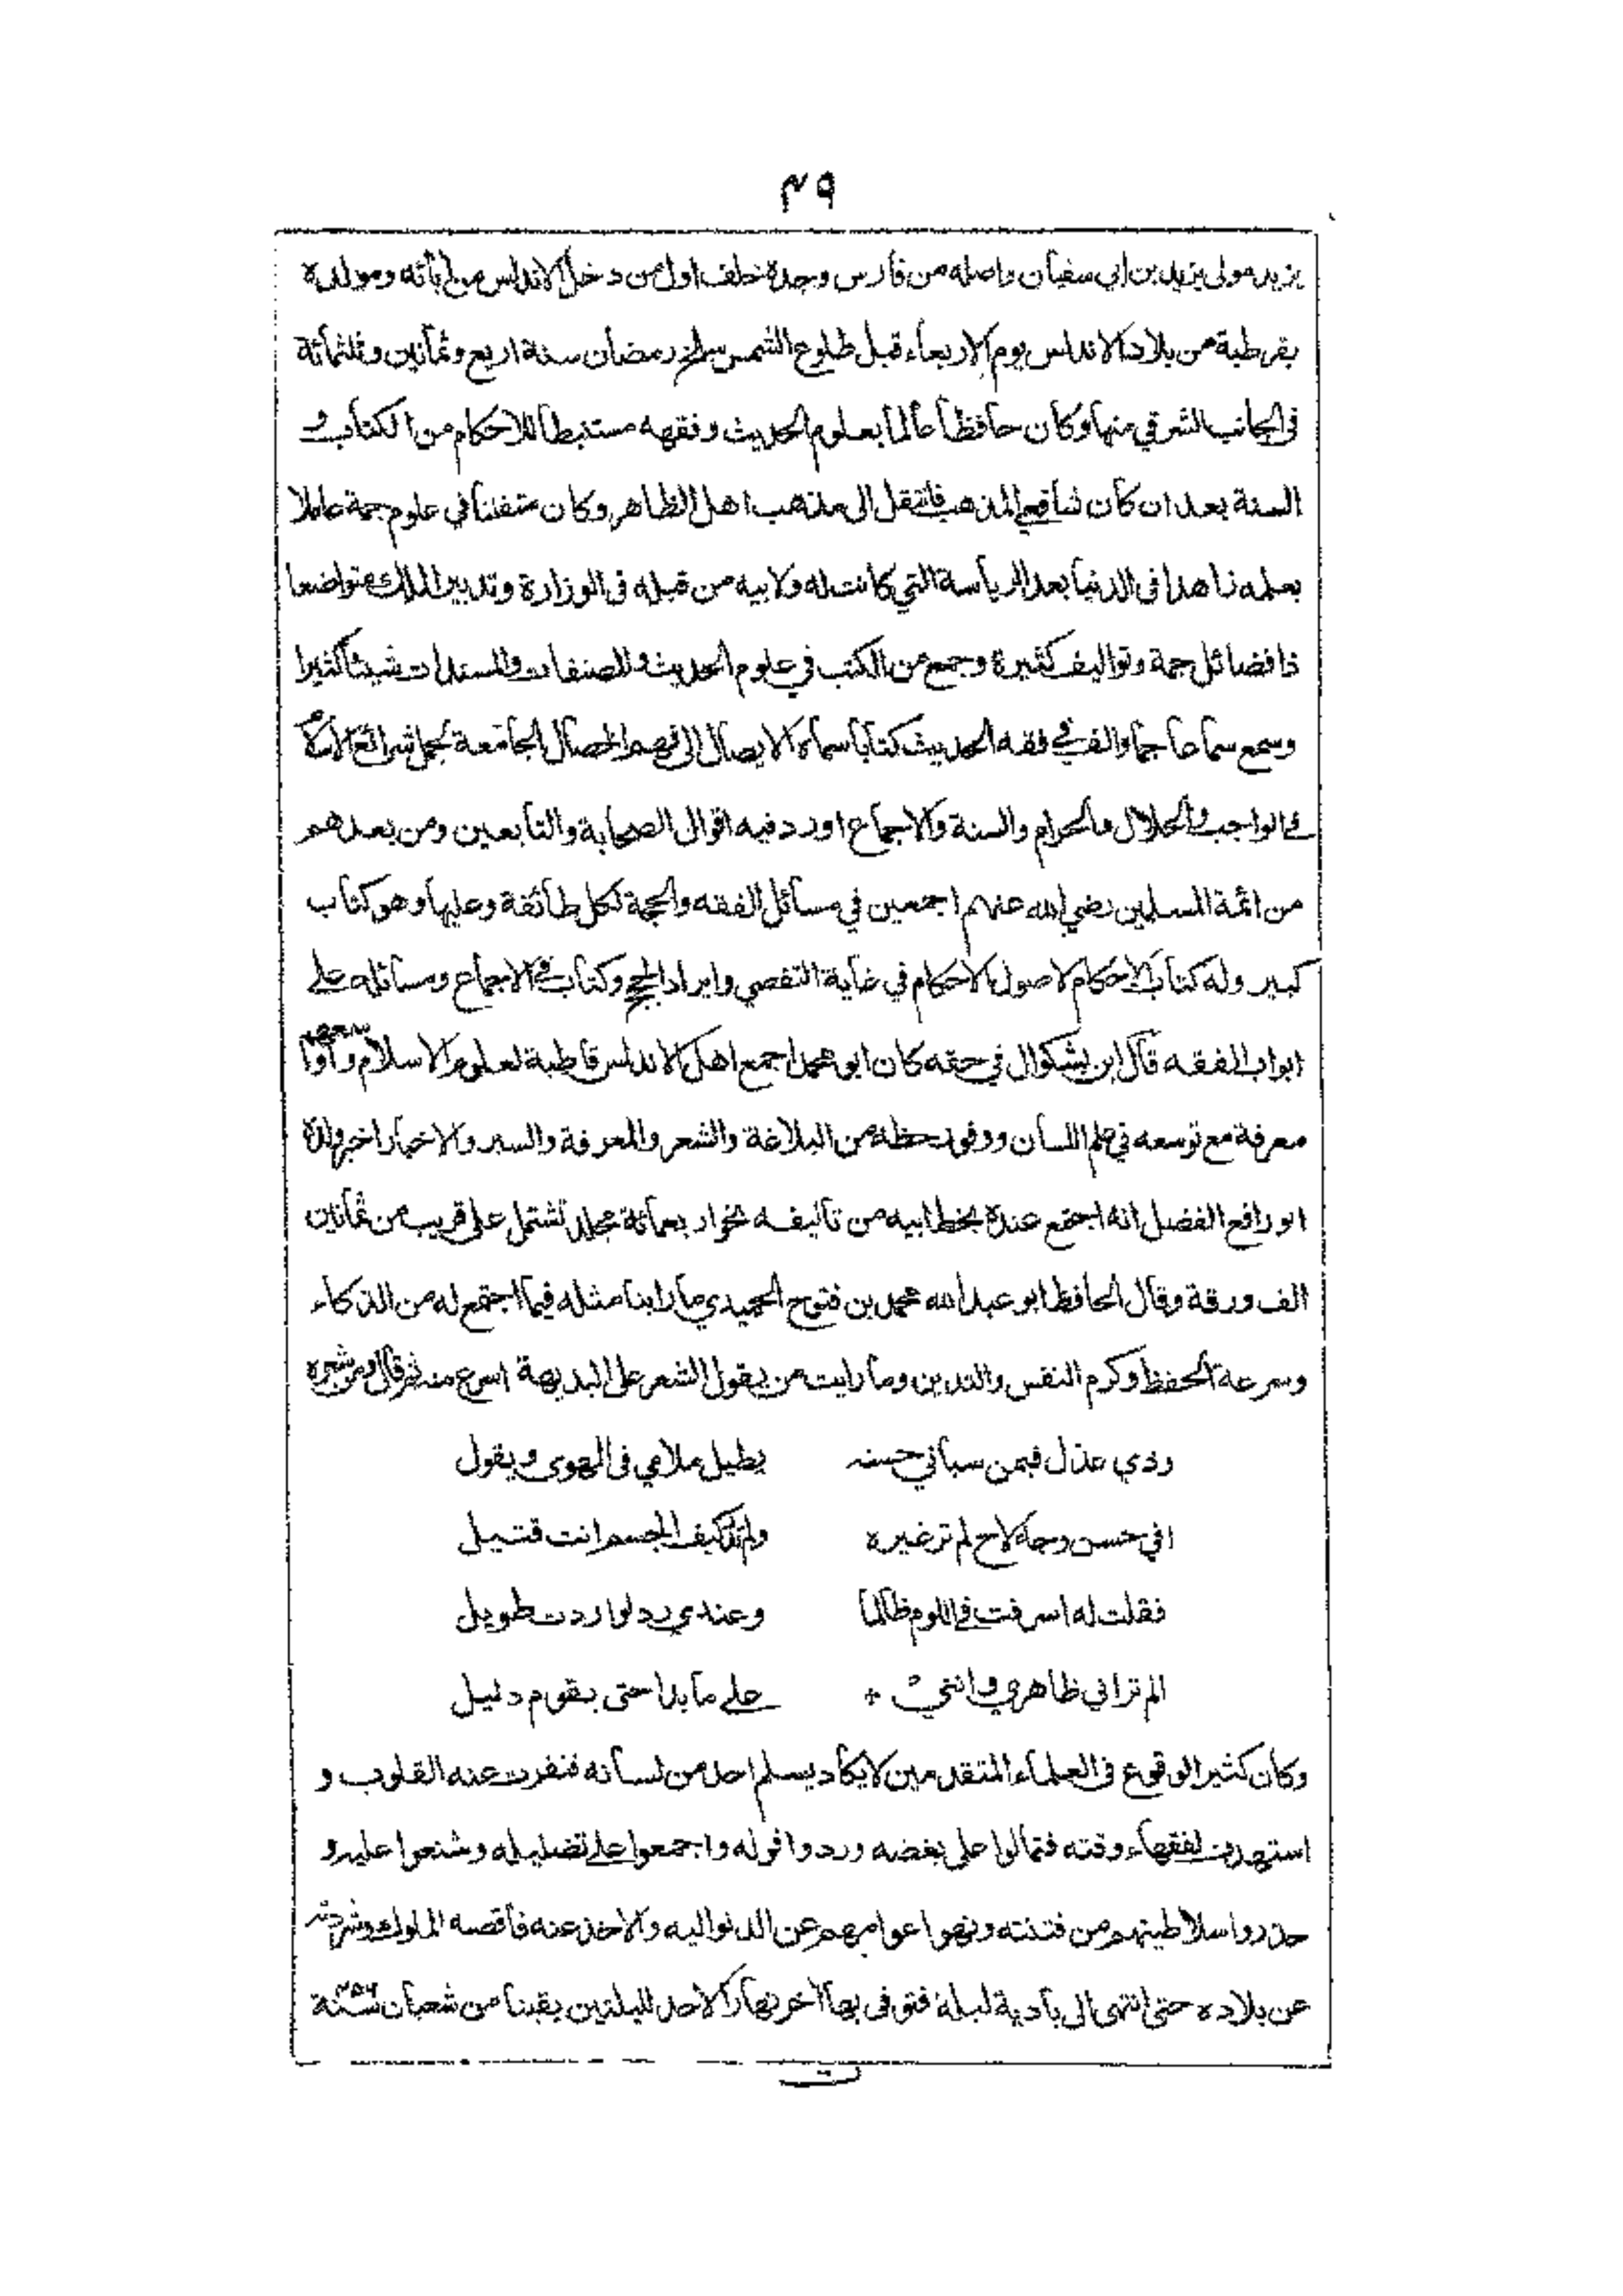 ٣٩
يزيد مولى يزيد بن ابي سفيان واصله من فارس وجده خلف اول من دخل الاندلس من آبائه ومولده
بقرطبة من بلاد الاندلس يوم الاربعاء قبل طلوع الشمس سلخ رمضان سنة اربع وثمانين وثلثمائة
في الجانب الشرقي منها وكان حافظا عالما بعلوم الحديث وفقهه مستنبطا للاحكام من الكتاب و
السنة بعد ان كان شافعي المذهب فانتقل الى مذهب اهل الظاهر وكان متفننا في علوم جمة عاملا
بعلمه زاهدا في الدنيا بعد الرياسة التي كانت له ولابيه من قبله في الوزارة وتدبير الملك متواضعا
ذا فضائل جمة وتواليف كثيرة وجمع من الكتب في علوم الحديث والمصنفات والمسندات شيئا كثيرا
وسمع سماعا جما والف في فقه الحديث كتابا سماه الايصال الى فهم الخصال الجامعة لجمل شرائع الاسلام
في الواجب والحلال والحرام والسنة والاجماع اورد فيه اقوال الصحابة والتابعين ومن بعدهم
من ائمة المسلمين رضي الله عنهم اجمعين في مسائل الفقه والحجة لكل طائفة وعليها وهو كتاب
كبير وله كتاب الاحكام لاصول الاحكام في غاية التقصي وايراد الحجج وكتاب في الاجماع ومسائله على
ابواب الفقه قال ابن بشكوال في حقه كان ابو محمد اجمع اهل الاندلس قاطبة لعلوم الاسلام واوسعهم
معرفة مع توسعه في علم اللسان ووفور حظه من البلاغة والشعر والمعرفة والسير والاخبار اخبر ولده
ابو رافع الفضل انه اجتمع عنده بخط ابيه من تاليفه نحو اربعمائة مجلد تشتمل على قريب من ثمانين
الف ورقة وقال الحافظ ابو عبد الله محمد بن فتوح الحميدي ما راينا مثله فيما اجتمع له من الذكاء
وسرعة الحفظ وكرم النفس والتدين وما رايت من يقول الشعر على البديهة اسرع منه ثم قال ومن شعره
وذي عذل فيمن سباني حسنه يطيل ملامي في الهوى ويقول
افي حسن وجه لاح لم تر غيره ولم تدر كيف الجسم انت قتيل
فقلت له اسرفت في اللوم ظالما وعندي رد لو اردت طويل
الم تر اني ظاهري وانني + على ما بدا حتى يقوم دليل
وكان كثير الوقوع في العلماء المتقدمين لا يكاد يسلم احد من لسانه فنفرت عنه القلوب و
استهدف لفقهاء وقته فتمالوا على بغضه وردوا قوله واجمعوا على تضليله وشنعوا عليه و
حذروا سلاطينهم من فتنته ونهوا عوامهم عن الدنو اليه والاخذ عنه فاقصته الملوك وشردته
عن بلاده حتى انتهى الى بادية لبلة فتوفي بها آخر نهار الاحد لليلتين بقيتا من شعبان سنة ٤٥٦